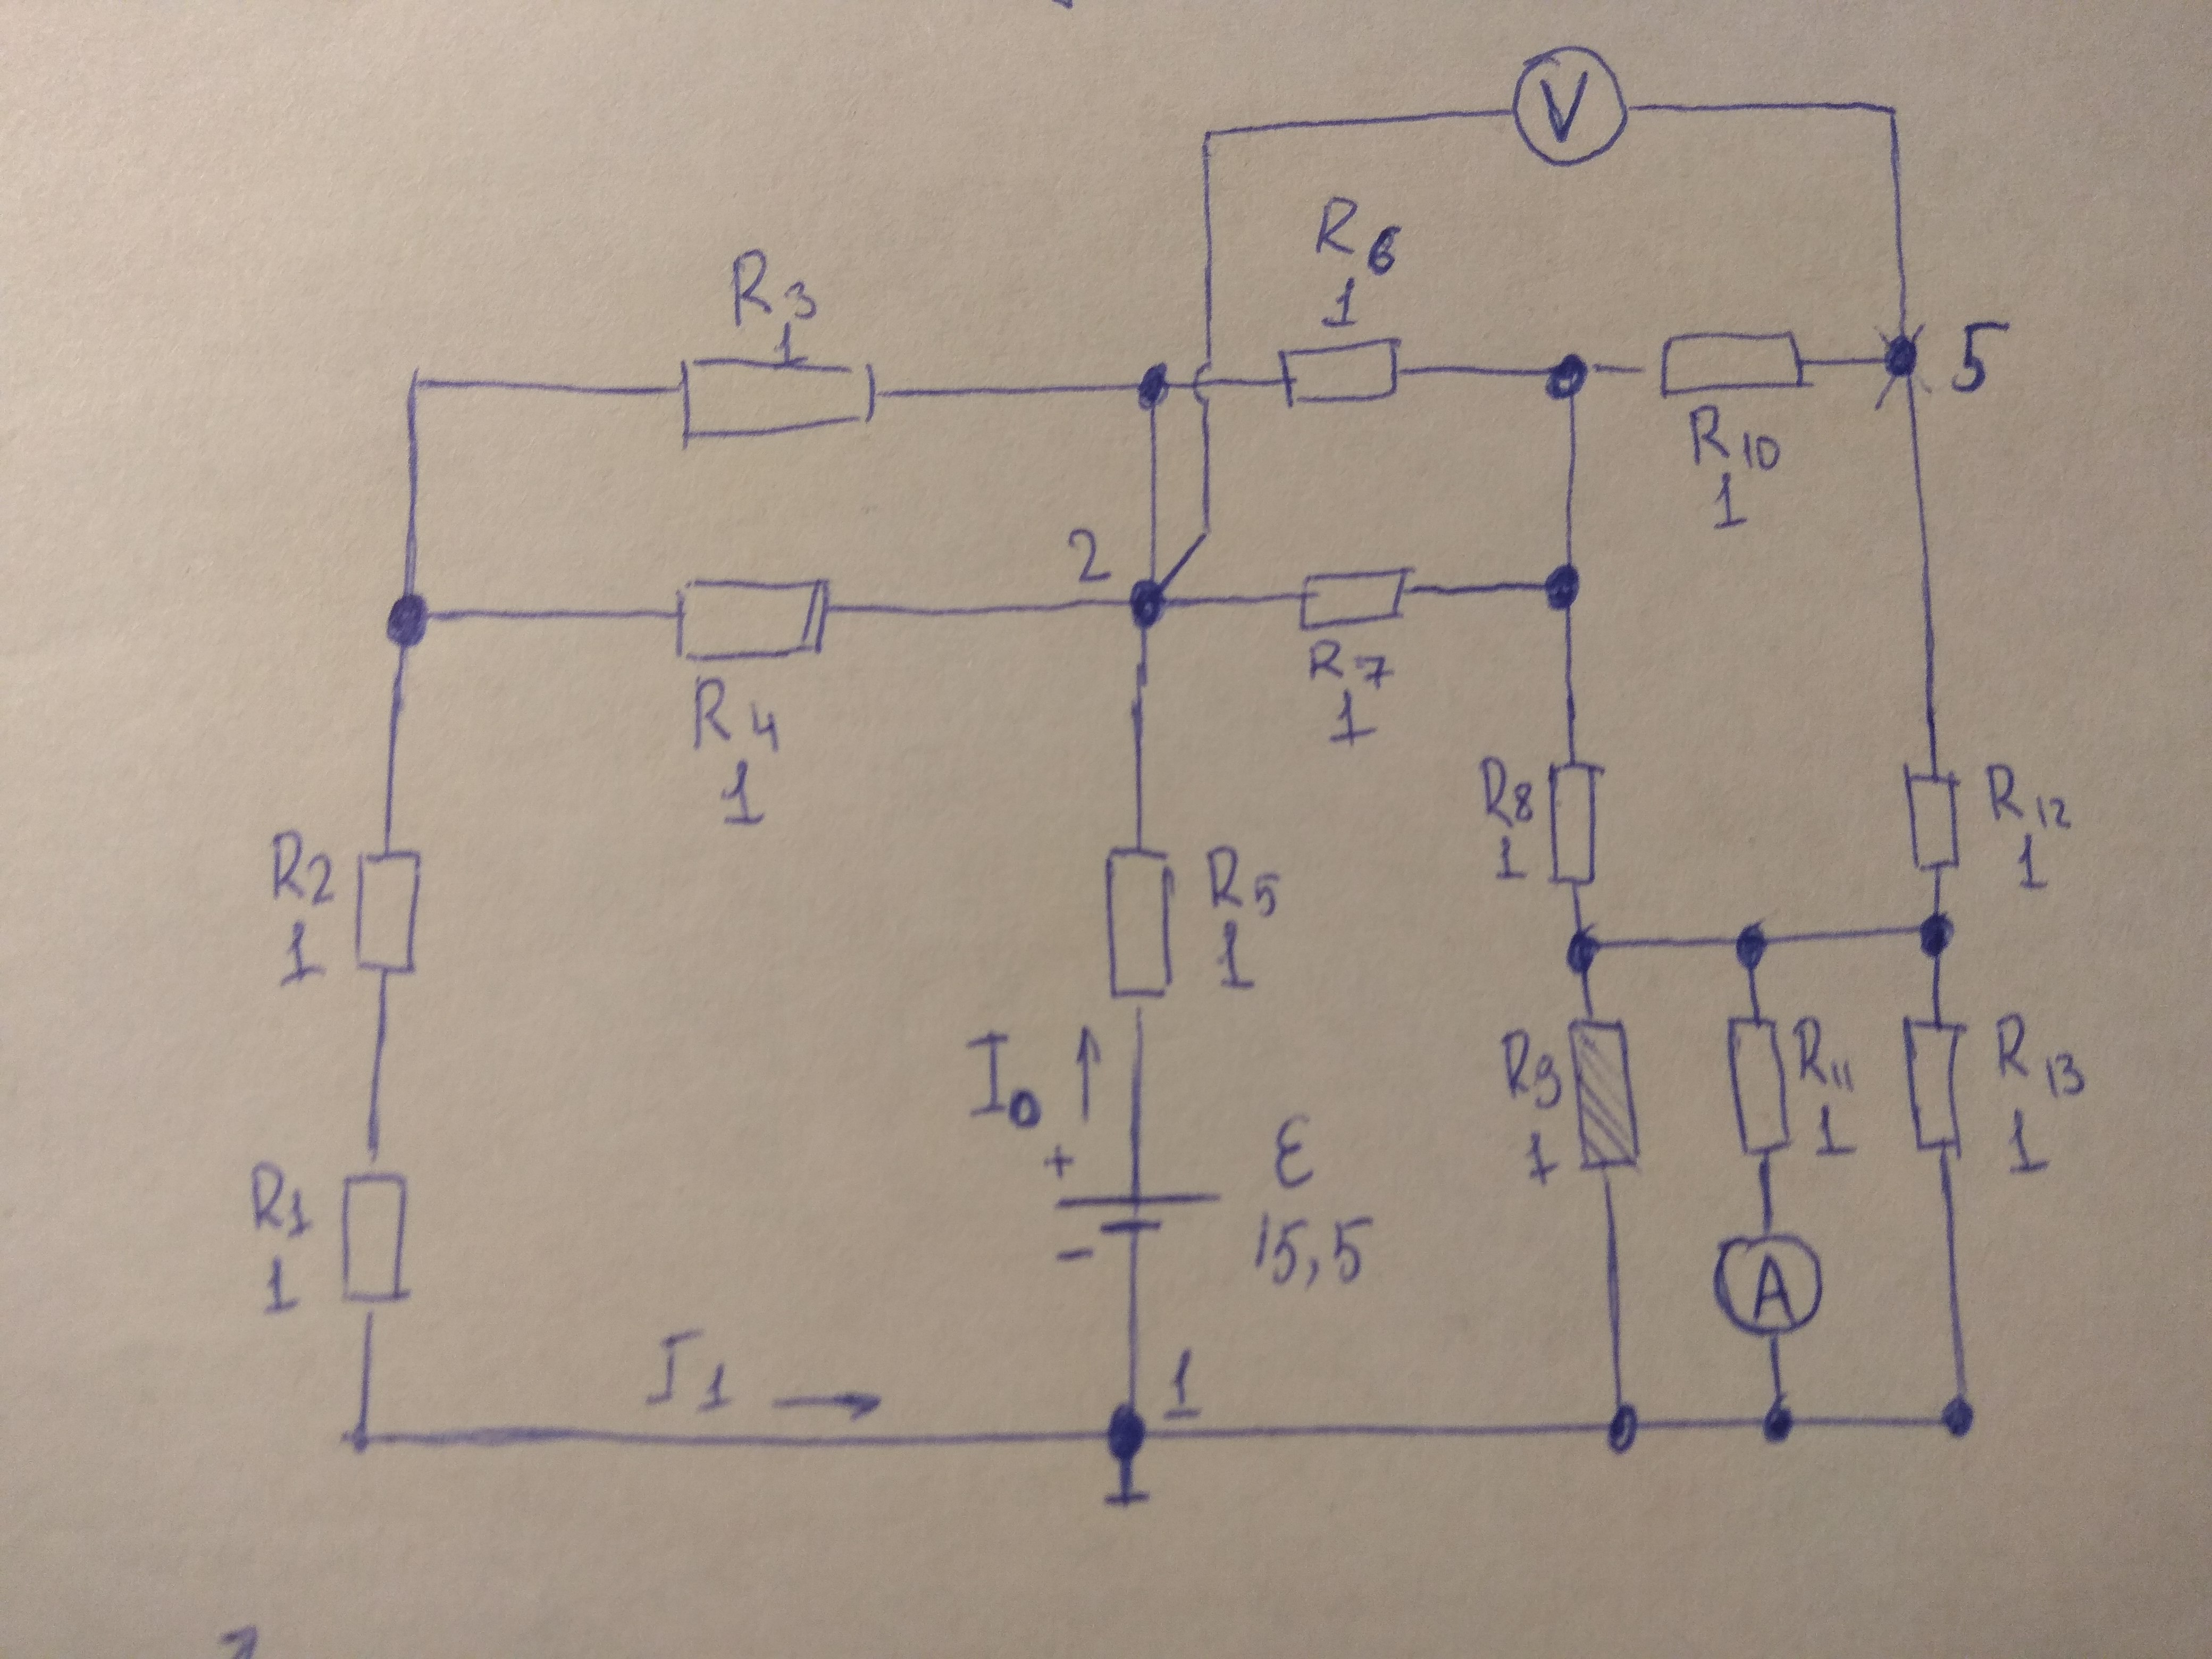 V
R6
1
R3
1
5
R10
1
2
R7
1
R4
1
R8
1
R12
1
R2
1
R5
1
I0
+
ε
15,5
-
R9
1
R11
1
R13
1
A
R1
1
I1
1